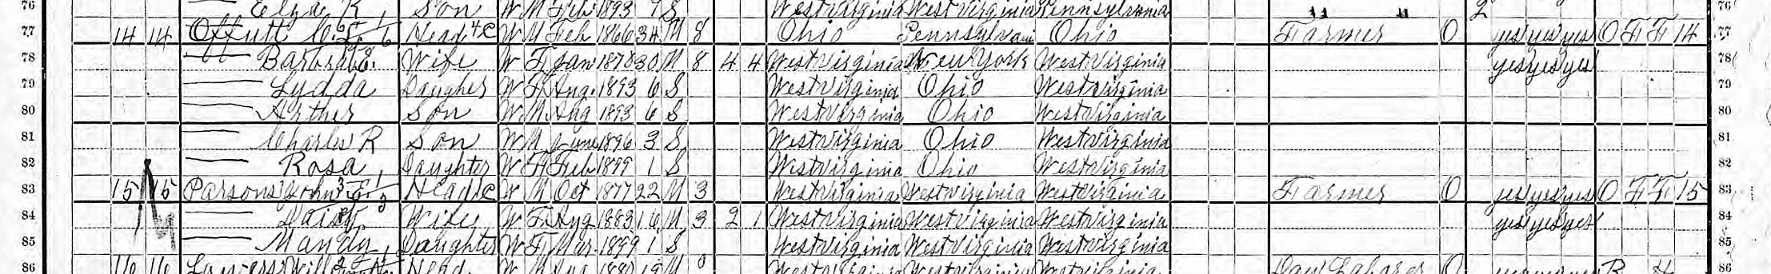 76 Clyde R Son W M Feb 1893 7 S West Virginia West Virginia Pennsylvania 76
77 14 14 Offutt Head W M Feb 1866 34 M 8 Ohio Pennsylvania Ohio Farmer 0 yes yes yes O F F 14 77
78 Barbra Wife W F Jan 1870 30 M 8 4 4 West Virginia New York West Virginia yes yes yes 78
79 Lydda Daughter W F Aug 1893 6 S West Virginia Ohio West Virginia 79
80 Arther Son W M Aug 1893 6 S West Virginia Ohio West Virginia 80
81 Charles R Son W M June 1896 3 S West Virginia Ohio West Virginia 81
82 Rosa Daughter W F Feb 1899 1 S West Virginia Ohio West Virginia 82
83 15 15 Parsons John Head W M Oct 1877 22 M 3 West Virginia West Virginia West Virginia Farmer 0 yes yes yes O F F 15 83
84 Daisy Wife W F Aug 1883 16 M 3 2 1 West Virginia West Virginia West Virginia yes yes yes 84
85 Mandy Daughter W F Mar 1899 1 S West Virginia West Virginia West Virginia 85
86 16 16 Will Head W M Aug M 0 West Virginia West Virginia West Virginia Day Laborer 0 R 86